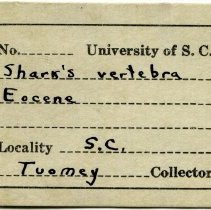 No. University of S. C.
Shark's vertebra
Eocene
Locality S.C.
Tuomey Collector